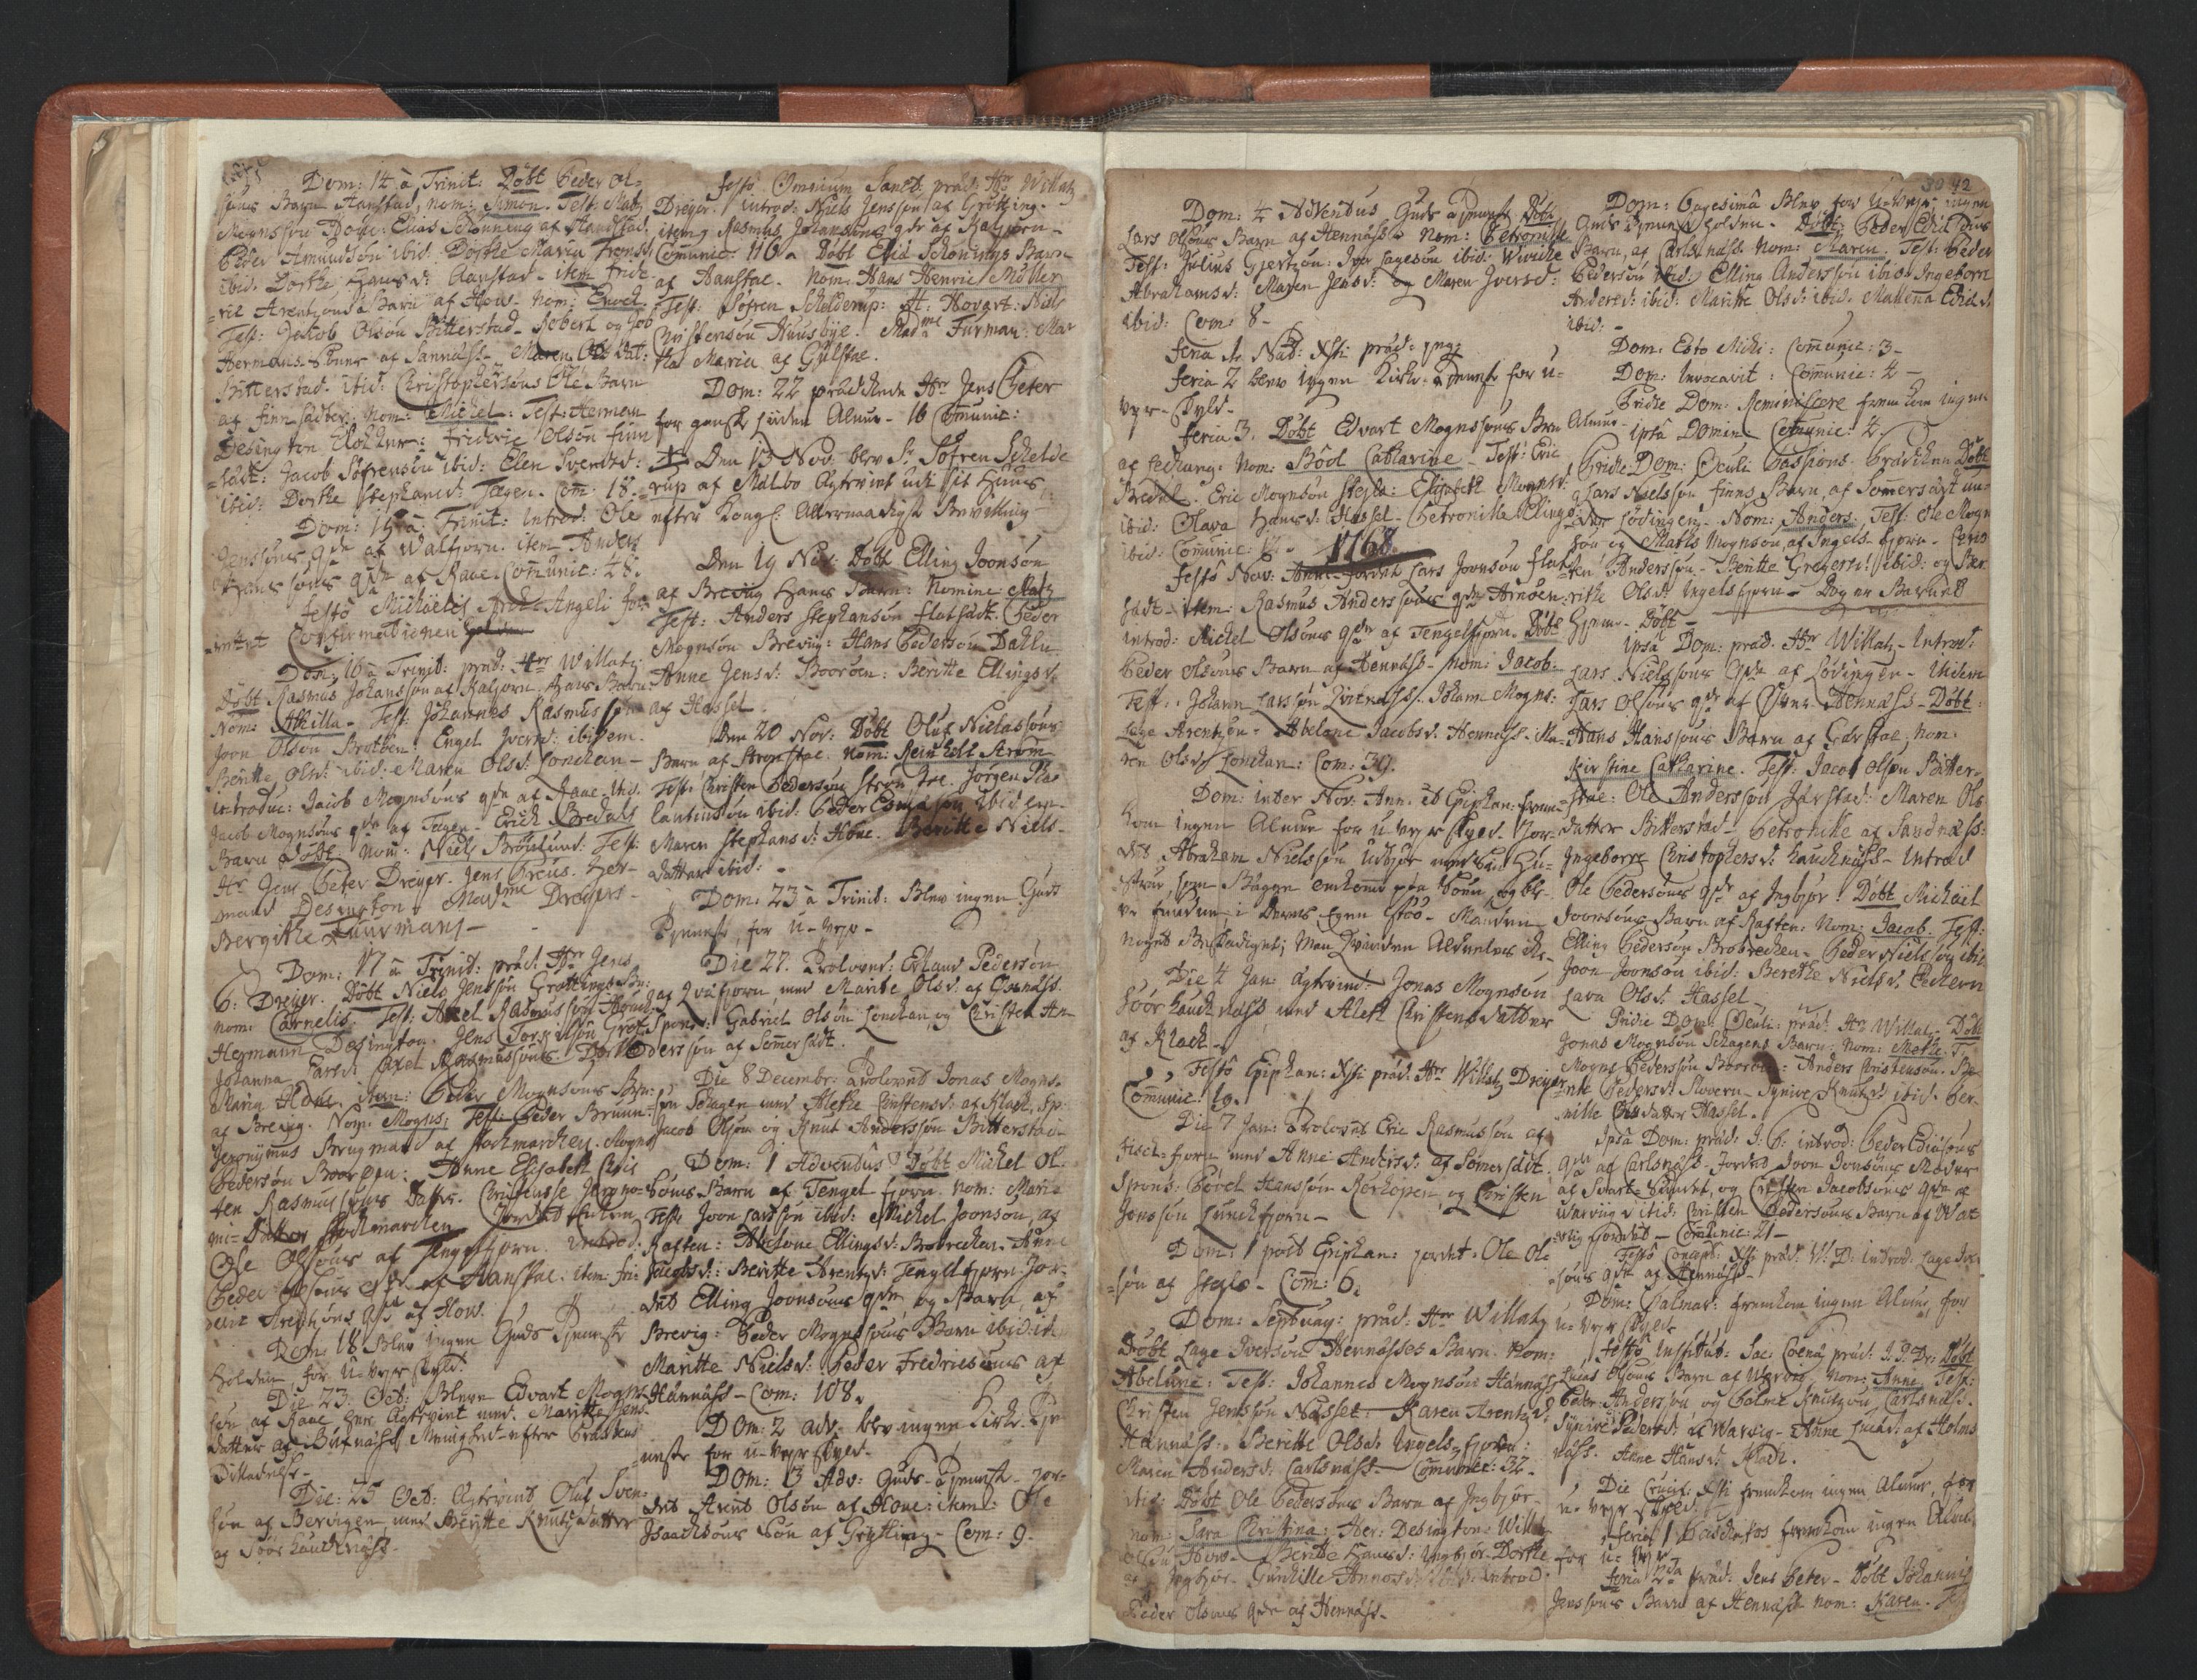 Dom: 14 à Trinit: Døbt Peder Ol=
søns Barn Hanstad, nom: Simon. Test: Matz
Mognssøn Hove: Elias Schonning af Hanstad:
Peder Amundsøn ibid: Dorthe Maria
ibid: Dorthe Hansd: Hanstad. item Fride
=rik Arentzøns Barn af How. Nom: Enoch.
Test: Jakob Olsøn Bitterstad. Robert og Job
Hermans Sønner af Sannæss. Maren Ols dat:
Bitterstad. ibid: Christophersøns Ole Barn
af Finnsædter: Nom: Michel: Test: Herman
Desington Klokker: Frideric Olsøn Finn
=sædt: Jacob Søfrensøn ibid: Elen Svendsd:
ibid: Dorthe Stephansd: Teigen. Com: 18.
Dom: 15 à Trinit: Introd: Ole
Jenssøns qde af Walfjorn. item Anders
Hanssøns qde af Raae. Communic: 48.
Festo Michaelis Arch-Angeli for=
=rettet Confirmationen
Dom: 16 à Trinit: præd: Hr Willatz
Døbt Rasmus Johanssøn af Kalfjorn Hans Barn
Nom: Abkilla. Test: Johannes Rasmussøn
Joen Olsøn Bratben: Engel Iversd: ibidem.
Beritte Olsd: ibid: Maren Olsd: Lonchan.
introduc: Jacob Mognsøns qde af Raae. ibid.
Jacob Mognsøns qde af Teigen. Erich Bredals
Barn Døbt. Nom: Niels Brønlund: Test:
Hr Jens Peter Dreyer. Jens Greus. Her=
mand Desington. Madme Dreyers.
Bergithe Fuurmans.
Dom: 17 à Trinit: præd: Hr Jens
P: Dreyer. Døbt Niels Jenssøn Grøttings Bn:
nom: Cornelis. Test: Axel Rasmussøn
Hermann Desington. Jens Torkilsøn
Johanna Larsd: Axel Rasmussøns
Maria Hove. item: Peder Mognsøns Bn:
af Brevig. Nom: Mogns; Test: Peder Bruun:
Jeronymus Brugmand af Stockmarchen. Mogns
Pedersøn Boorøen: Anne Elisabeth Chris
ten Rasmussøns Datter. Christense Jerono=
mi-Datter Stockmarchen
Ole Olssøns af Tengelfjorn. Introd:
Peder Olssøns qde af Hanstad. item: Fri=
deric Arentsøns Qde af How.
Dom: 18. Blev ingen Guds Tjeneste
holden, for u-vejr skyld.
Die 23 Oct: Bleve Edvart Mogn=
søn af Raae Hans Ægtevint med Maritte Jens=
datter af Bufnæss
Die: 25 Oct: Ægtevint Oluf Sven=
søn af Bervigen med Beritte Knuts datter
af Soor haucknæss.
Festo Omnium Sanct: præd: Hr Willatz
Dreyer. introd: Niels Jenssøns af Grøtting.
item Rasmus Johansens qde af Kalfjorn.
Communic: 116. Døbt Elias Schonnings Barn
af Hanstad. Nom: Hans Henric Møller
Test: Søfren Schelderup: H: Hovart: Niels
Christensøn Huusbye: Madme Furman: Mar
tha Maria af Gulstad.
Dom: 22 prædikede Hr Jens Peter
for gansk liden Almue. 16 Communic:
Den 13 Nov: blev Sr Søfren Schelde
rup af Melbo Ægteviet udi sit Huus,
efter Kongl: Allernaadigst Bevilling
Den 19 Nov: Døbt Elling Joensøn
af Brevig Hans Barn: Nomine Matz
Test: Anders Stephansøn Flatsædt. Peder
Mognsøn Brevig: Hans Pedersøn Dahlu.
Anne Jensd: Boorøen: Beritte Ellingsd:
af Hassel.
Den 20 Nov: Døbt Oluf Nielssøns
Barn af Stronstad. Nom: Reinholt Strøm
Test: Christen Pedersøn Stronstad. Jørgen
ibid: Peder Esaiasøn ibid
Maren Stephansd: Hove. Beritte Niels=
datter ibid:
Dom: 23 à Trinit: Blev ingen Guds
Tjeneste, for u-vejr.
Die 27. Trolovet: Erland Pedersøn
af Quæfjorn, med Maritte Olsd: af Gosnæss.
Spons: Gabriel Olsøn Lonchan og Christen An
derssøn af Sommersædt.
Die 8 Decembr: Trolovet Jonas Mogns=
søn Schagen med Alethe Christensd: af Klack. Sp:
Jacob Olsøn og Knut Anderssøn Bitterstad.
Dom: 1 Adventus Døbt Michel Ol=
søns Barn af Tengelfjorn. nom: Maria
Test: Joen Larssøn ibid: Michel Joensøn, af
Raften: Abelone Ellingsd: Brobrechen. Anne
Jacobsd: Beritte Arentzd: Tengelfjorn. Jor=
det Elling Joensøns qde og Barn, af
Brevig: Peder Mognssøns Barn ibid: it:
Maritte Nielsd: Peder Fredricsøns af
Hannæss. Com: 108.
Dom: 2 adv: blev ingen Kirke-Tje
neste for u-vejr skyld.
Dom: 3 Adv: Guds-Tjeneste. Jor=
det Arent Olsøn af Hove: item: Ole
Isaachsøns Søn af Grytting. Com: 9.
30 42
Dom: 4 Adventus Guds Tjeneste Døbt
Lars Olsøns Barn af Hennæss. Nom: Petronille
Test: Julius Gjertzøn: Iver Lagesøn ibid: Wiviche
Abrahamsd: Maren Jensd: og Maren Iversd:
ibid: Com: 8.
Feria 1. Nat: Xsti præd:
Feria 2 blev ingen Kirke-Tjeneste for u=
vejr-Skyld.
Feria 3. Døbt Edvart Mognssøns Brn
af Fechung: Nom: Bodl Catharine. Test: Eric
Bredal. Eric Mognsøn Stegla: Elisabeth Mognsd:
ibid: Olava Hansd: Hassel. Petronilla Ellings
ibid: Communic: 12.
1768.
Festo Nov: Anni. Jordet Lars Joensøn Flat=
sædt. item: Rasmus Anderssøns qde Arnøen
introd: Michel Olsøns qde af Tengelfjorn. Døbt
Peder Olsøns Barn af Hennæss. Nom: Jacob.
Test: Johann Larssøn Qvitnæss. Johan Mogns:
Lage Arentsøn. Abelone Jacobsd. Hennæss. Ma=
ren Olsd: Lonchan: Com: 39.
Dom: inter Nov: Ann. et Epiphan: frem=
kom ingen Almue for u-vejr skyld. Jor=
det Abraham Nielssøn Udtjør med sin Hu=
strue, som Begge omkom paa Søen, og ble=
ve funden i Deres egen Støe. Manden
noget Beskadiget; Men Qvinden aldeeles ik=
Die 4 Jan: Ægtevied Jonas Mognsøn
Soor haucknæss med Aleth Christens datter
af Klack.
Festo Epiphan: Xsti præd: Hr Willatz Dreyer
Communic: 19.
Die 7 Jan: Trolovet Eric Rasmussøn af
Fiskfjorn med Anne Andersd: af Sommersædt.
Spons: Børel Hanssøn Rørkopen, og Christen
Jenssøn Lunckfjorn.
Dom: 1 post Epiphan: jordet: Ole Ole
=søn af Stegle. Com: 6.
Dom: Septuag: præd: Hr Willatz
Døbt Lage Iversøn Hennæsses Barn. Nom:
Abelone: Test: Johannes Mognsøn Hannæss
Christen Jenssøn Næsset: Karen Arentzd:
Hannæss. Beritte Olsd: Ingelsfjorn:
Maren Andersd: Carlsnæss. Communic: 32.
ibid: Døbt Ole Pedersøns Barn af Ingbjør.
nom: Sara Christina: Her: Desington: Willatz
How. Beritte Hansd: Ingbjør. Dorthe
Ingbjør. Gunhille introd:
Peder Olsøns qde af Hennæss.
Dom: Sexagesima Blev for U-vejr ingen
Guds Tjeneste holden. Døbt: Peder Eliæ Søns
Barn, af Carlsnæss. Nom: Maren. Test: Peder
Pedersøn ibid: Elling Anderssøn ibid: Ingeborn
Andersd: ibid: Maritte Olsd: ibid: Mallena Eliæd:
ibid:
Dom: Esto Mihi: Communic: 3.
Dom: Invocavit: Communic: 4.
Pridie Dom: Reminiscere fremkom ingen
Almue. ipsa Dominc: Communic: 4.
Pridie Dom: Oculi Passions Prædiken Døbt
Lars Nielssøn Finns Barn, af Sommersædt un=
der Lødingen. Nom: Anders. Test: Ole Mogn
søn og Matis Mognsøn, af Ingelsfjorn. Chris
ten Anderssøn. Beritte Gregersd: ibid: og Be=
ritte Olsd: Ingelsfjorn. Dog er Barnet
Hjemme-Døbt
Ipsa Dom: præd: Hr Willatz. Introd:
Lars Nielssøns qde af Lødingen. Item
Lars Olssøns qde af Hennæss. Døbt:
Hans Hanssøns Barn af Jørstad, Nom:
Kirstine Catharine. Test: Jacob Olsøn Bitter=
stad: Ole Anderssøn Jørstad: Maren Ols
datter Bitterstad. Petronille af Sandnæss.
Ingeborre Christophersd: haucknæss. Introd
Ole Pedersøns qde af Ingbjør. Døbt Michael
Joensøns Barn af Raften. Nom: Jacob. Test:
Elling Pedersøn Brobrechen. Peder Nielsøn ibid.
Joen Joensøn ibid: Berethe Nielsd.
Lava Olsd. Hassel.
Pridie Dom: Oculi: præd: Hr Willatz. Døbt
Jonas Mognsøn Schagens Barn: Nom: Mette. T:
Mogns Pedersøn Boorøen: Anders Christensøn. Be
rnte Pedersd: Slovern. Synive Knutsd: ibid. Per=
nille Hassel.
Ipsa Dom: præd: J: P: introd: Peder Eliæsøns
qde af Carlsnæss. Jordet Joen Jonsøns Moder
af Svart-Sundet, og Christen Jacobsøns qde af
Warvig ibid: Christen Pedersøns Barn af War
vig jordet. Communic: 21.
Festo Concept: Xsti præd: W: D: introd: Lage Iver
søns qde af Hennæss.
Dom: Palmar: fremkom ingen Almue for
u-vejr skyld.
Festo Institut: Sac: Coenæ præd: J: P: Dr: Døbt
Lucas Olsøns Barn af Warvig. Nom: Anne. Test:
Peder Anderssøn og Palme Knutzøn Carlsnæss.
Synive Pedersd: af Warvig. Anne Lucæd: af Holms
næss. Anne Hansd: Klack.
Die Crucif: Xsti fremkom ingen Almue, for
u-vejr skyld.
Feria 1 Paschatos fremkom ingen Almue
for u-vejr
Feria 2da præd: Jens Peter. Døbt Johannis
Jenssøns Barn af Hennæss nom: Karen. T: